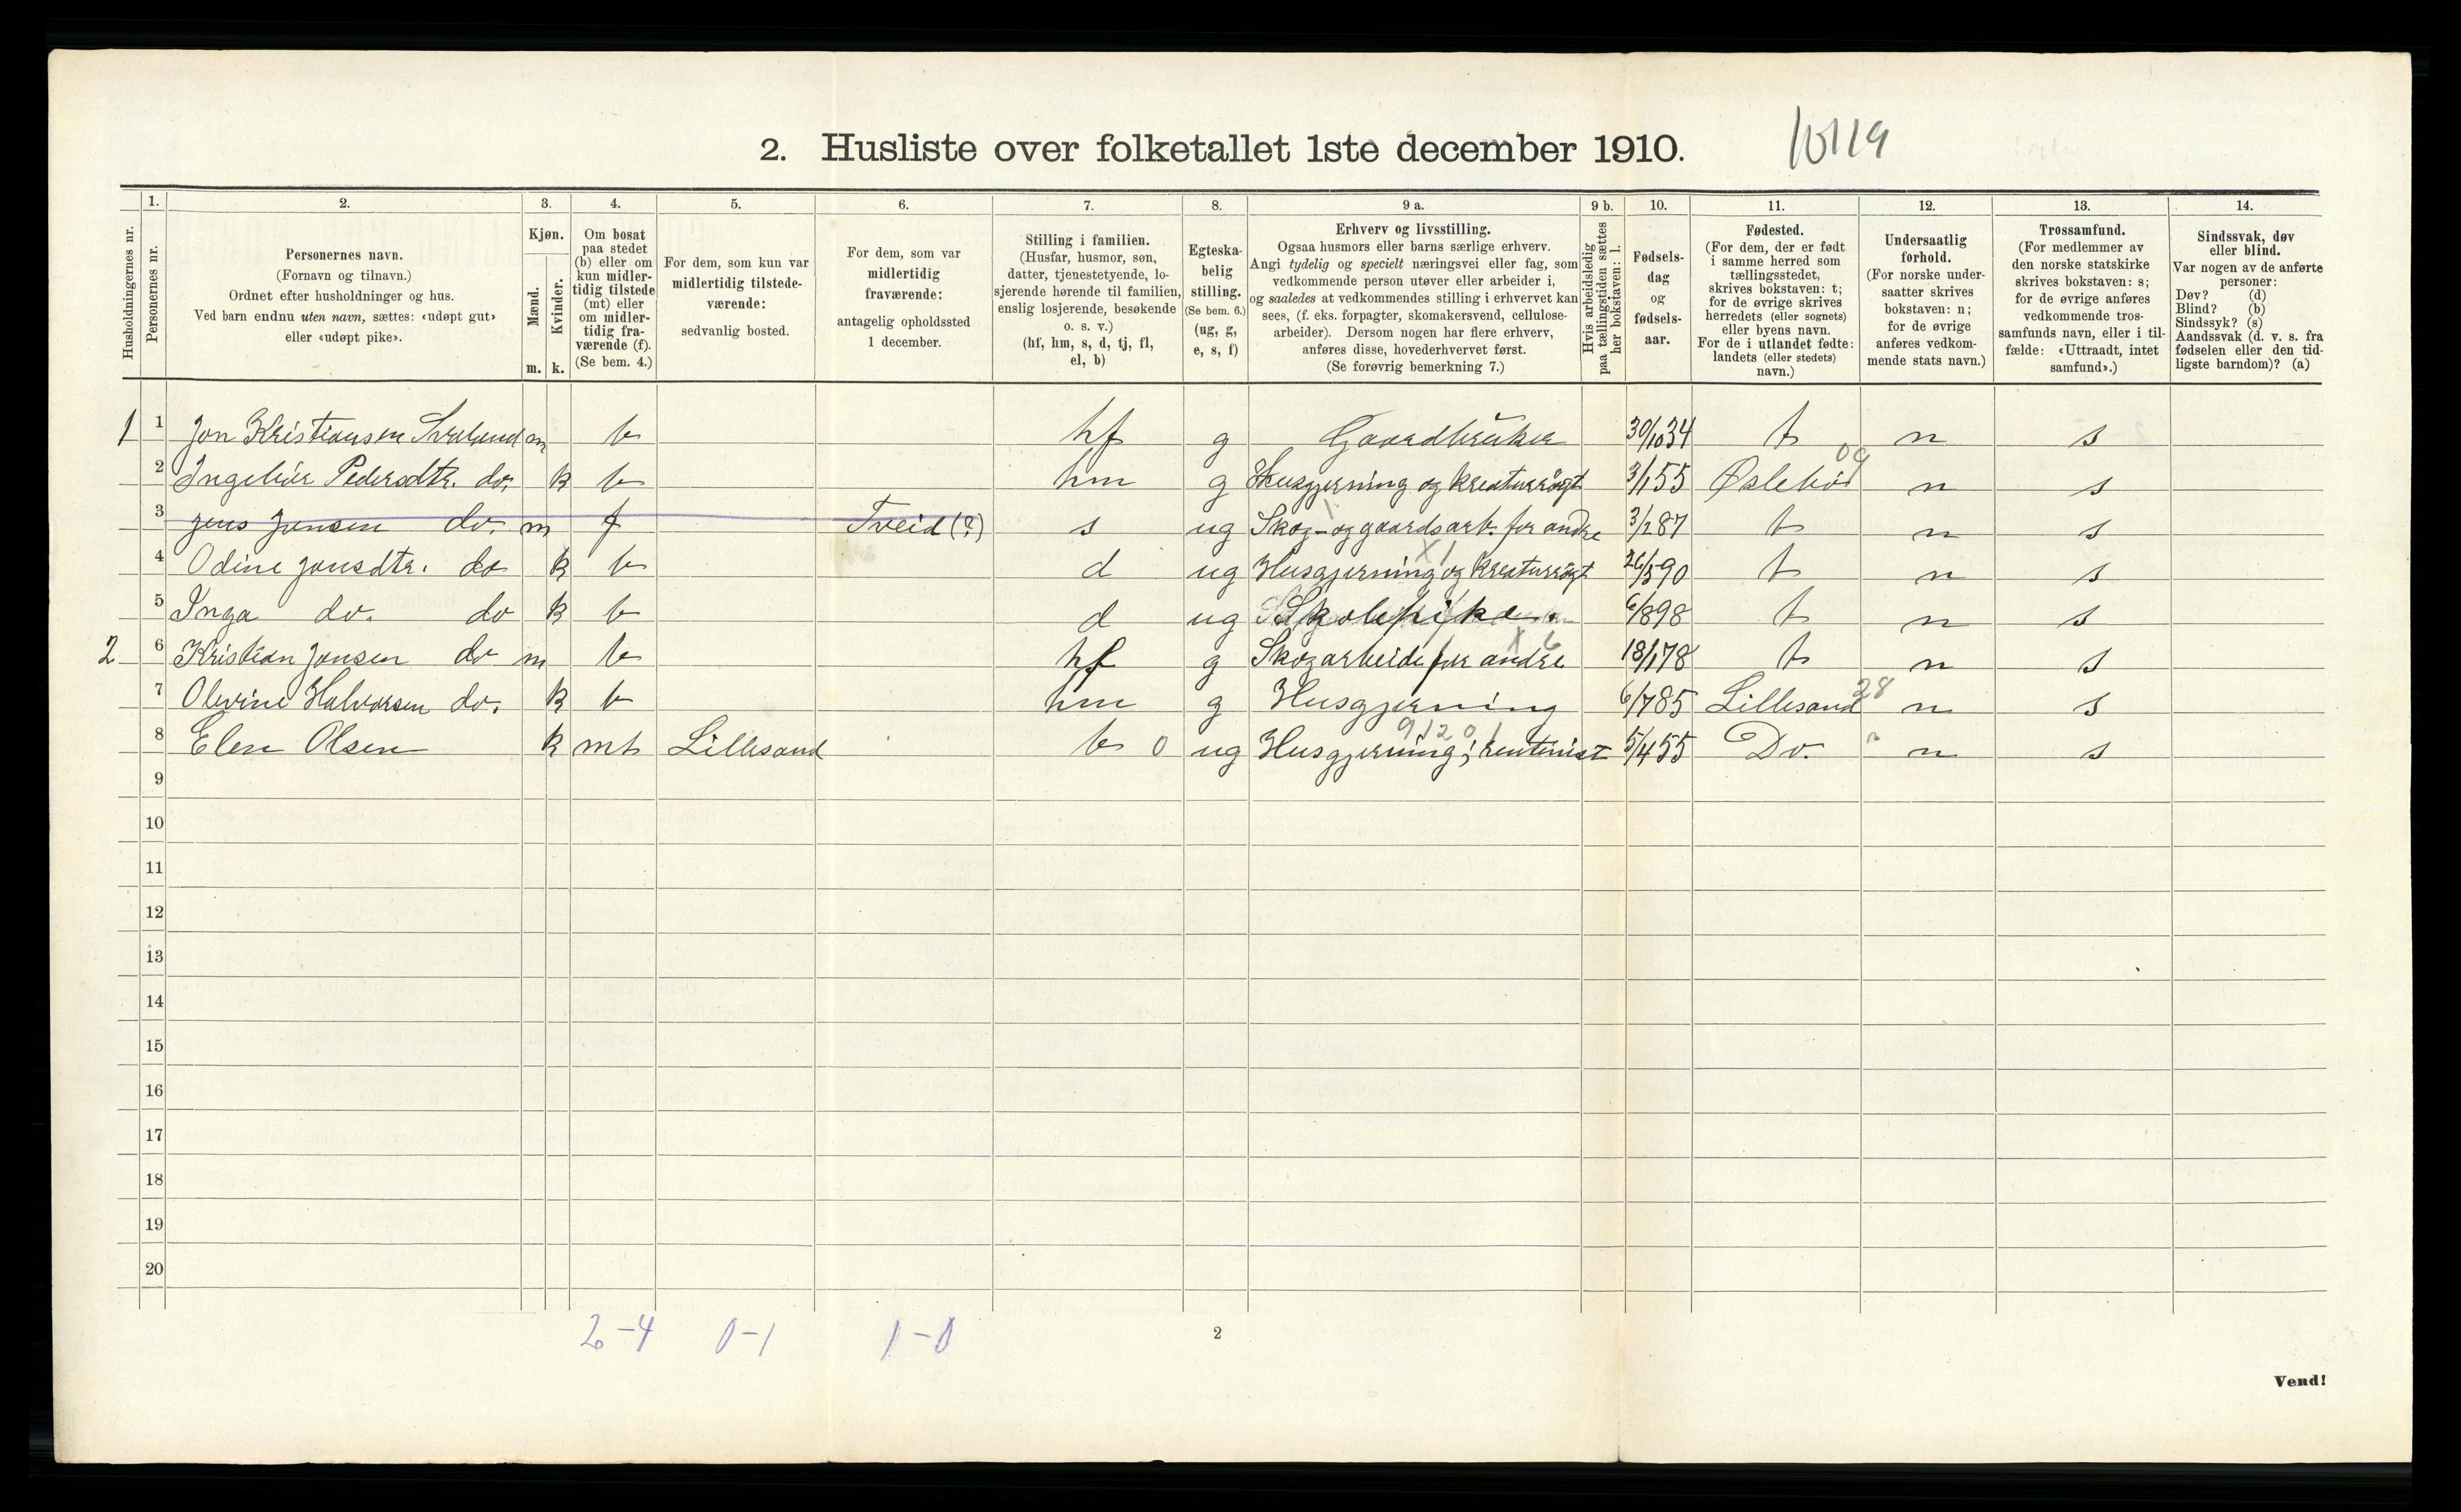 2. Husliste over folketallet 1ste december 1910.
10119
Husholdningernes nr.
1.
Personernes nr.
2.
Personernes navn.
(Fornavn og tilnavn.)
Ordnet efter husholdninger og hus.
Ved barn endnu uten navn, sættes: «udøpt gut»
eller «udøpt pike».
3.
Kjøn.
Mænd.
Kvinder.
m. k.
4.
Om bosat
paa stedet
(b) eller om
kun midler-
tidig tilstede
(mt) eller
om midler-
tidig fra-
værende (f).
(Se bem. 4.)
5.
For dem, som kun var
midlertidig tilstede-
værende:
sedvanlig bosted.
6.
For dem, som var
midlertidig
fraværende:
antagelig opholdssted
1 december.
7.
Stilling i familien.
(Husfar, husmor, søn,
datter, tjenestetyende, lo-
sjerende hørende til familien,
enslig losjerende, besøkende
o. s. v.)
(hf, hm, s, d, tj, fl,
el, b)
8.
Egteska-
belig
stilling.
(Se bem. 6.)
(ug, g,
e, s, f)
9 a.
Erhverv og livsstilling.
Ogsaa husmors eller barns særlige erhverv.
Angi tydelig og specielt næringsvei eller fag, som
vedkommende person utøver eller arbeider i,
og saaledes at vedkommendes stilling i erhvervet kan
sees, (f. eks. forpagter, skomakersvend, cellulose-
arbeider). Dersom nogen har flere erhverv,
anføres disse, hovederhvervet først.
(Se forøvrig bemerkning 7.)
9 b.
Hvis arbeidsledig
paa tællingstiden sættes
her bokstaven: l.
10.
Fødsels-
dag
og
fødsels-
aar.
11.
Fødested.
(For dem, der er født
i samme herred som
tællingsstedet,
skrives bokstaven: t;
for de øvrige skrives
herredets (eller sognets)
eller byens navn.
For de i utlandet fødte:
landets (eller stedets)
navn.)
12.
Undersaatlig
forhold.
(For norske under-
saatter skrives
bokstaven: n;
for de øvrige
anføres vedkom-
mende stats navn.)
13.
Trossamfund.
(For medlemmer av
den norske statskirke
skrives bokstaven: s;
for de øvrige anføres
vedkommende tros-
samfunds navn, eller i til-
fælde: «Uttraadt, intet
samfund».)
14.
Sindssvak, døv
eller blind.
Var nogen av de anførte
personer:
Døv? (d)
Blind? (b)
Sindssyk? (s)
Aandssvak (d. v. s. fra
fødselen eller den tid-
ligste barndom)? (a)
1 1 Jon Kristiansen m b hf g Gaardbruker 30/10 34 t n s
2 Pedersdtr. do. k b hm g Husgjerning og kreaturrøgt 3/1 55 09 n s
3 Jens Jonsen do. m f Tveid (?) s ug Skog- og gaardsarb. for andre 3/2 87 t n s
4 Odine Jonsdtr. do k b d ug Husgjerning og kreaturrøgt X1 26/5 90 t n s
5 Inga do. do k b d ug Skolepike. 6/8 98 t n s
2 6 Kristian Jonsen do m b hf g Skogarbeide for andre X 6 18/1 78 t n s
7 Olevine Halvorsen do. k b hm g Husgjerning 6/7 85 Lillesand 28 n s
8 Elen Olsen k mt Lillesand b 0 ug Husgjerning; rentenist 91201 5/4 55 Do. " n s
9
10
11
12
13
14
15
16
17
18
19
20
2-4 0-1 1-0
2
Vend!